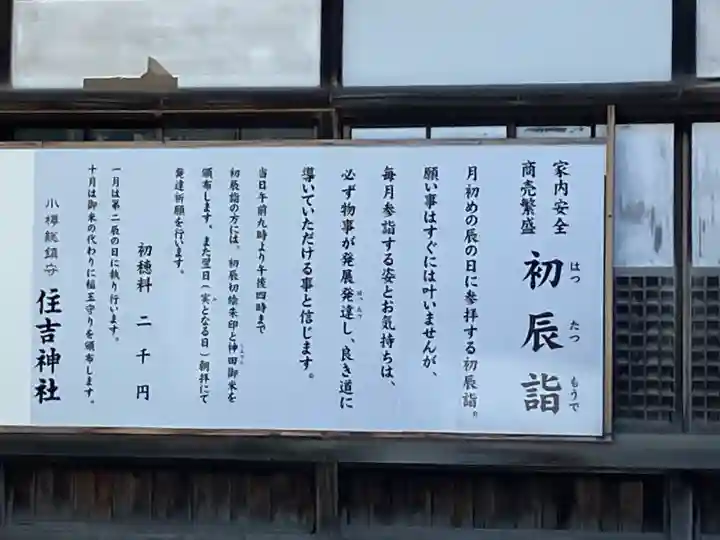 家内安全
商売繁盛
初辰詣
はつ たつ もうで
月初めの辰の日に参拝する初辰詣。
願い事はすぐには叶いませんが、
毎月参詣する姿とお気持ちは、
必ず物事が発展発達し、良き道に
導いていただける事と信じます。
当日午前九時より午後四時まで
初辰詣の方には、初辰初絵朱印と神田御米を
頒布します。また翌日(実となる日)朝拝にて
発達祈願を行います。
初穂料 二千円
一月は第二辰の日に執り行います。
十月は御米の代わりに稲玉守りを頒布します。
小樽総鎮守 住吉神社